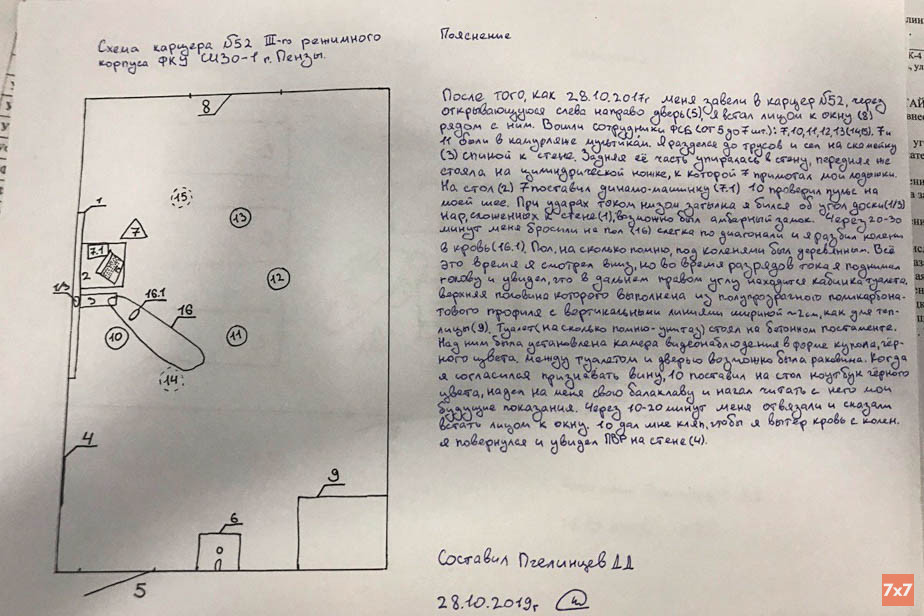 Схема карцера №52 III-го режимного
корпуса ФКУ СИЗО-1 г. Пензы.
8
15
1
13
7
7.1
2
12
1/3
3
16.1
16
10
11
14
4
9
6
5
Пояснение
После того, как 28.10.2017г меня завели в карцер №52, через
открывающуюся слева направо дверь(5), я встал лицом к окну (8)
рядом с ним. Вошли сотрудники ФСБ (от 5 до 7 шт.): 7, 10, 11, 12, 13 (14,15). 7 и
11 были в камуфляже мультикам. Я разделся до трусов и сел на скамейку
(3) спиной к стене. Задняя её часть упиралась в стену, передняя же
стояла на цилиндрической ножке, к которой 7 примотал мои лодыжки.
На стол (2) 7 поставил динамо-машинку (7.1) 10 проверил пульс на
моей шее. При ударах током низом затылка я бился об угол доски (1/3)
нар, сложенных к стене (1), возможно был амбарный замок. Через 20-30
минут меня бросили на пол (16) слегка по диагонали и я разбил колени
в кровь (16.1). Пол, на сколько помню, под коленями был деревянным. Всё
это время я смотрел вниз, но во время разрядов тока я поднимал
голову и увидел, что в дальнем правом углу находится кабинка туалета,
верхняя половина которого выполнена из полупрозрачного поликарбона-
тового профиля с вертикальными линиями шириной ~2см, как для теп-
лиц (9). Туалет (на сколько помню - унитаз) стоял на бетонном постаменте.
Над ним была установлена камера видеонаблюдения в форме купола, чёр-
ного цвета, между туалетом и дверью возможно была раковина. Когда
я согласился признавать вину, 10 поставил на стол ноутбук чёрного
цвета, надел на меня свою балаклаву и начал читать с него мои
будущие показания. Через 10-20 минут меня отвязали и сказали
встать лицом к окну. 10 дал мне кляп, чтобы я вытер кровь с колен.
я повернулся и увидел ПВР на стене (4).
Составил Пчелинцев ДД
28.10.2019г
7x7